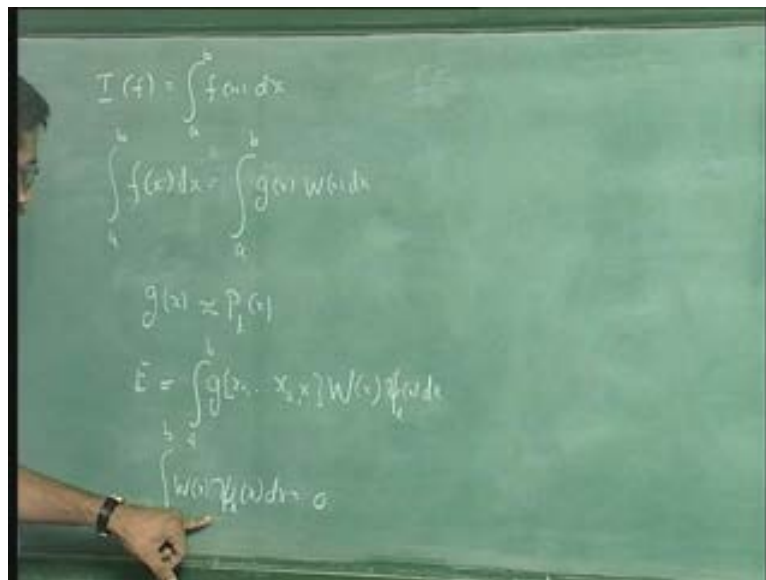 I(f) = ∫_a^b f(x) dx
∫_a^b f(x) dx = ∫_a^b g(x) W(x) dx
g(x) ≈ P_k(x)
E = ∫_a^b g[x_0 .. x_k, x] W(x) ψ_k(x) dx
∫_a^b W(x) ψ_k(x) dx = 0